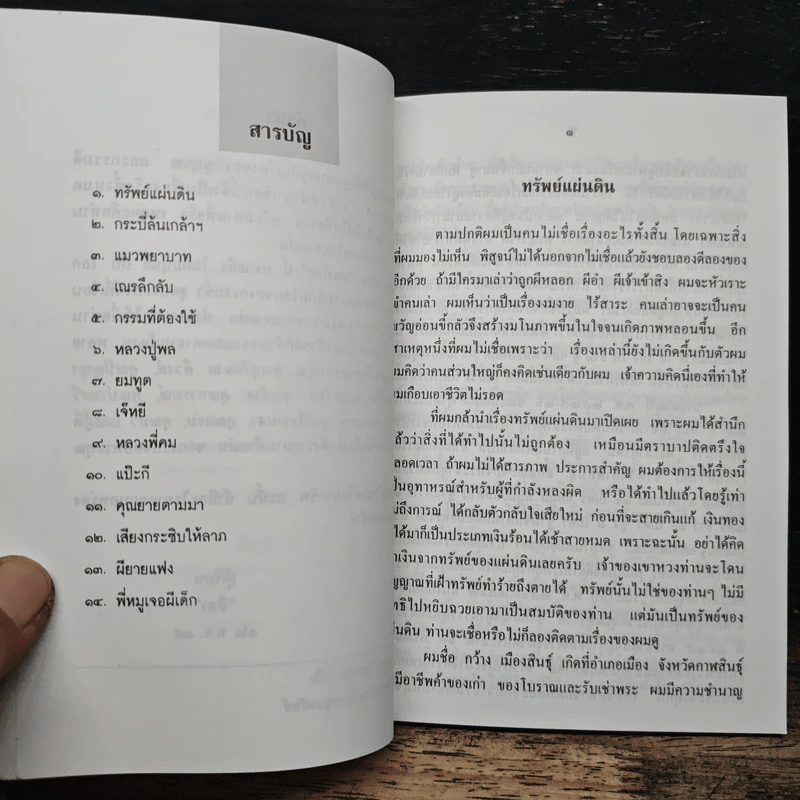 สารบัญ
๑. ทรัพย์แผ่นดิน
๒. กระบี่ล้นเกล้าฯ
๓. แมวพยาบาท
๔. เณรลึกลับ
๕. กรรมที่ต้องใช้
๖. หลวงปู่พล
๗. ยมทูต
๘. เจ๊หยี
๙. หลวงพี่คม
๑๐. แป๊ะกี
๑๑. คุณยายตามมา
๑๒. เสียงกระซิบให้ลาภ
๑๓. ผียายแฟง
๑๔. พี่หมูเจอผีเด็ก
๑
ทรัพย์แผ่นดิน
ตามปกติผมเป็นคนไม่เชื่อเรื่องอะไรทั้งสิ้น โดยเฉพาะสิ่ง
ที่ผมมองไม่เห็น พิสูจน์ไม่ได้นอกจากไม่เชื่อแล้วยังชอบลองดีลองของ
อีกด้วย ถ้ามีใครมาเล่าว่าถูกผีหลอก ผีอำ ผีเจ้าเข้าสิง ผมจะหัวเราะ
คนเล่า ผมเห็นว่าเป็นเรื่องงมงาย ไร้สาระ คนเล่าอาจจะเป็นคน
ขวัญอ่อนขี้กลัวจึงสร้างมโนภาพขึ้นในใจจนเกิดภาพหลอนขึ้น อีก
สาเหตุหนึ่งที่ผมไม่เชื่อเพราะว่า เรื่องเหล่านี้ยังไม่เกิดขึ้นกับตัวผม
ผมคิดว่าคนส่วนใหญ่ก็คงคิดเช่นเดียวกับผม เจ้าความคิดนี่เองที่ทำให้
ผมเกือบเอาชีวิตไม่รอด
ที่ผมกล้านำเรื่องทรัพย์แผ่นดินมาเปิดเผย เพราะผมได้สำนึก
แล้วว่าสิ่งที่ได้ทำไปนั้นไม่ถูกต้อง เหมือนมีตราบาปติดตรึงใจ
ตลอดเวลา ถ้าผมไม่ได้สารภาพ ประการสำคัญ ผมต้องการให้เรื่องนี้
เป็นอุทาหรณ์สำหรับผู้ที่กำลังหลงผิด หรือได้ทำไปแล้วโดยรู้เท่า
ไม่ถึงการณ์ ได้กลับตัวกลับใจเสียใหม่ ก่อนที่จะสายเกินแก้ เงินทอง
ได้มาก็เป็นประเภทเงินร้อนได้เช้าสายหมด เพราะฉะนั้น อย่าได้คิด
เงินจากทรัพย์ของแผ่นดินเลยครับ เจ้าของเขาหวงท่านจะโดน
วิญญาณที่เฝ้าทรัพย์ทำร้ายถึงตายได้ ทรัพย์นั้นไม่ใช่ของท่านๆ ไม่มี
สิทธิไปหยิบฉวยเอามาเป็นสมบัติของท่าน แต่มันเป็นทรัพย์ของ
แผ่นดิน ท่านจะเชื่อหรือไม่ก็ลองติดตามเรื่องของผมดู
ผมชื่อ กว้าง เมืองสินธุ์ เกิดที่อำเภอเมือง จังหวัดกาฬสินธุ์
มีอาชีพค้าของเก่า ของโบราณและรับเช่าพระ ผมมีความชำนาญ